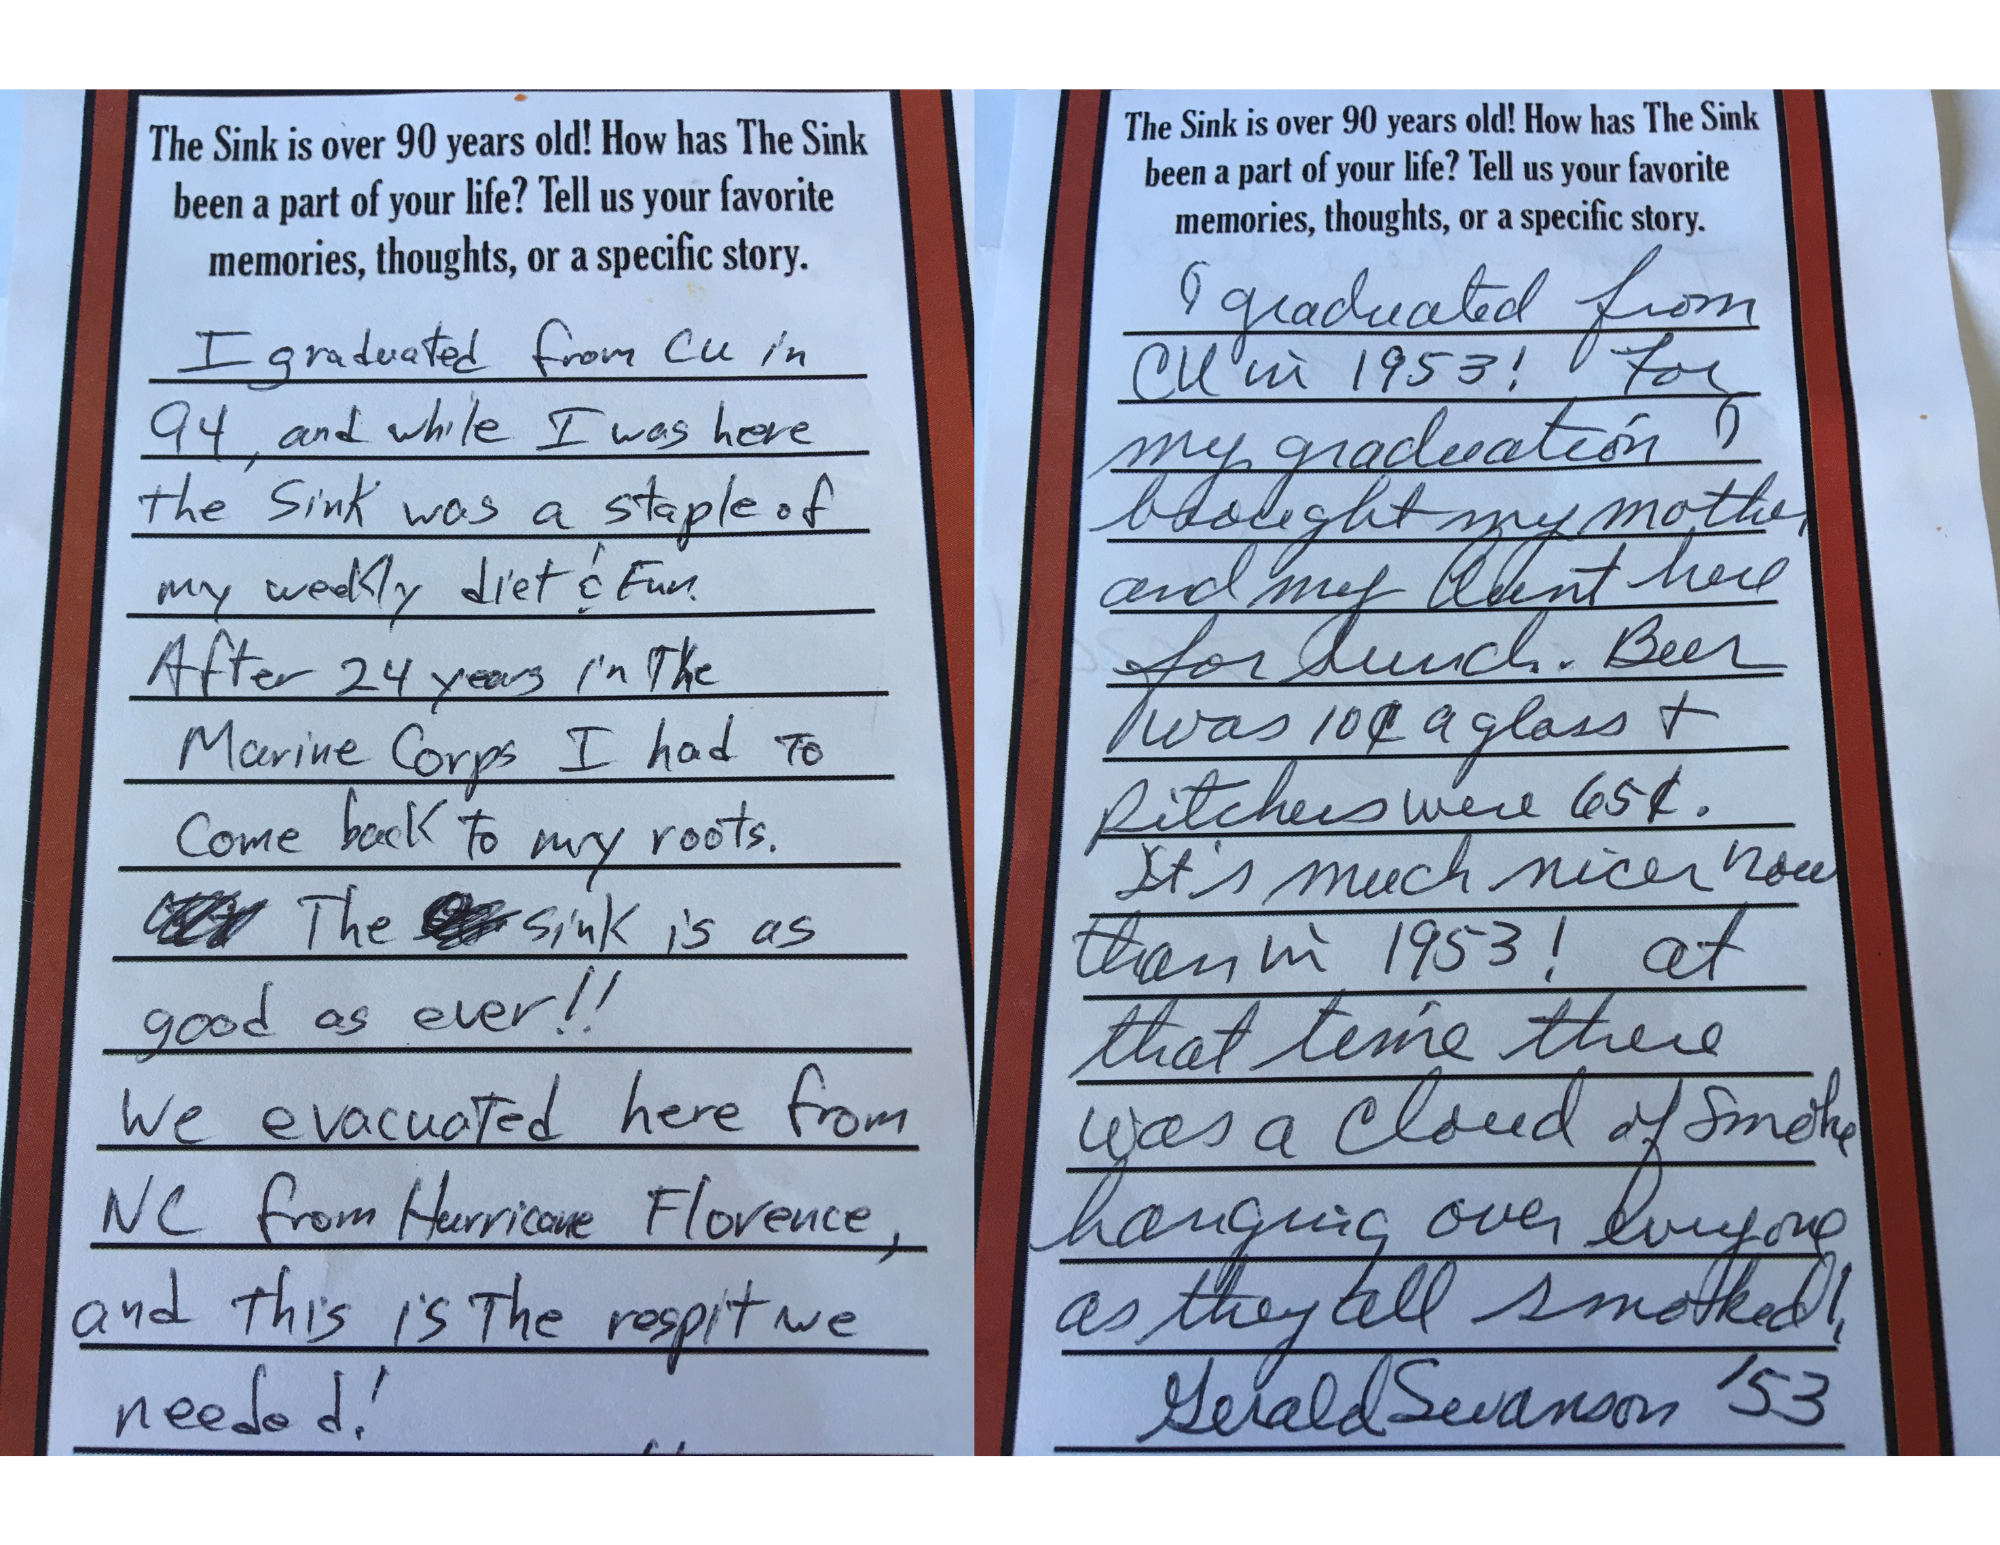 The Sink is over 90 years old! How has The Sink
been a part of your life? Tell us your favorite
memories, thoughts, or a specific story.
I graduated from CU in
94, and while I was here
the Sink was a staple of
my weekly diet & Fun!
After 24 years in The
Marine Corps I had To
Come back to my roots.
The sink is as
good as ever!!
We evacuated here from
NC from Hurricane Florence,
and This is The respit we
needed!
The Sink is over 90 years old! How has The Sink
been a part of your life? Tell us your favorite
memories, thoughts, or a specific story.
I graduated from
CU in 1953! For
my graduation I
brought my mother
and my Aunt here
for lunch. Beer
was 10¢ a glass +
pitchers were 65¢.
It's much nicer now
than in 1953! at
that time there
was a cloud of smoke
hanging over everyone
as they all smoked!
Gerald Swanson '53